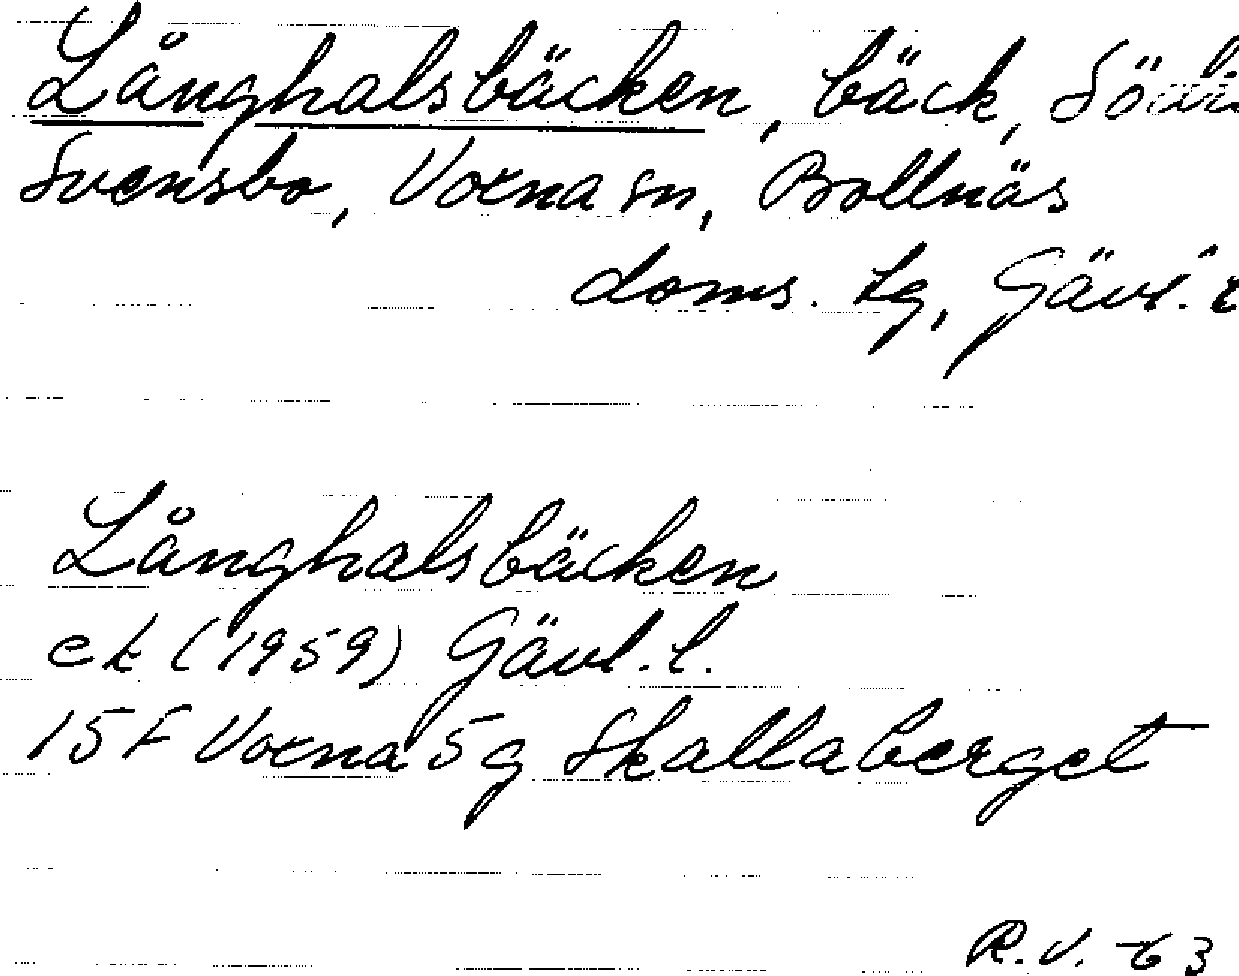 Långhalsbäcken, bäck,
Svensbo, Voxna sn, Bollnäs
doms. tg, Gävl. l
Långhalsbäcken
ek (1959) Gävl. l.
15F Voxna 5g Skallaberget
R.V. -63